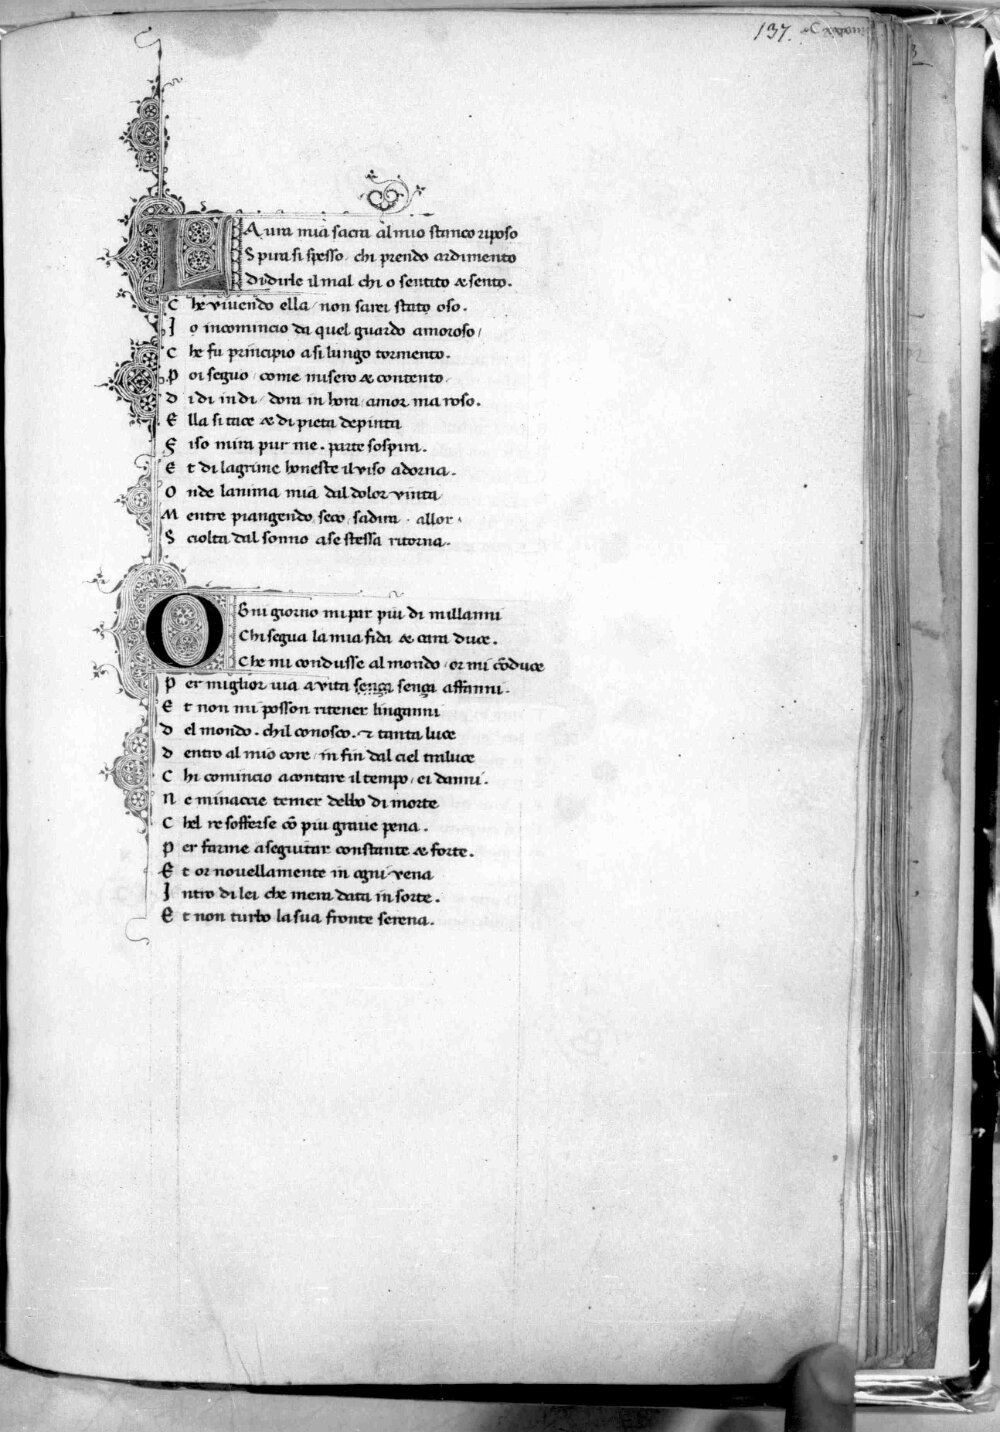 137.
LAura mia sacra al mio stanco riposo
Spira si spesso / chi prendo ardimento
di dirle il mal chi o sentito & sento.
Che vivendo ella / non sarei stato oso.
Io incomincio da quel guardo amoroso /
Che fu principio a si lungo tormento.
Poi seguo / come misero & contento
di di in di / dora in hora / amor ma roso.
Ella si tace & di pieta depinta
Fiso mira pur me. parte sospira.
Et di lagrime honeste il viso adorna.
Onde lanima mia dal dolor vinta
Mentre piangendo / seco / sadira. allor
Sciolta dal sonno a se stessa ritorna.
OGni giorno mi par piu di millanni
Chi segua la mia fida & cara duce.
Che mi condusse al mondo / or mi cõduce
Per miglior via a vita senza senza affanni.
Et non mi posson ritener linganni
del mondo. chil conosco. & tanta luce
dentro al mio core / in fin dal ciel traluce
Chi comincio a contare il tempo / ei danni.
Ne minaccie temer debbo di morte
Chel re sofferse cõ piu grave pena.
Per farme a seguitar constante & forte.
Et or novellamente in ogni vena
Intro di lei che mera data in sorte.
Et non turbo la sua fronte serena.